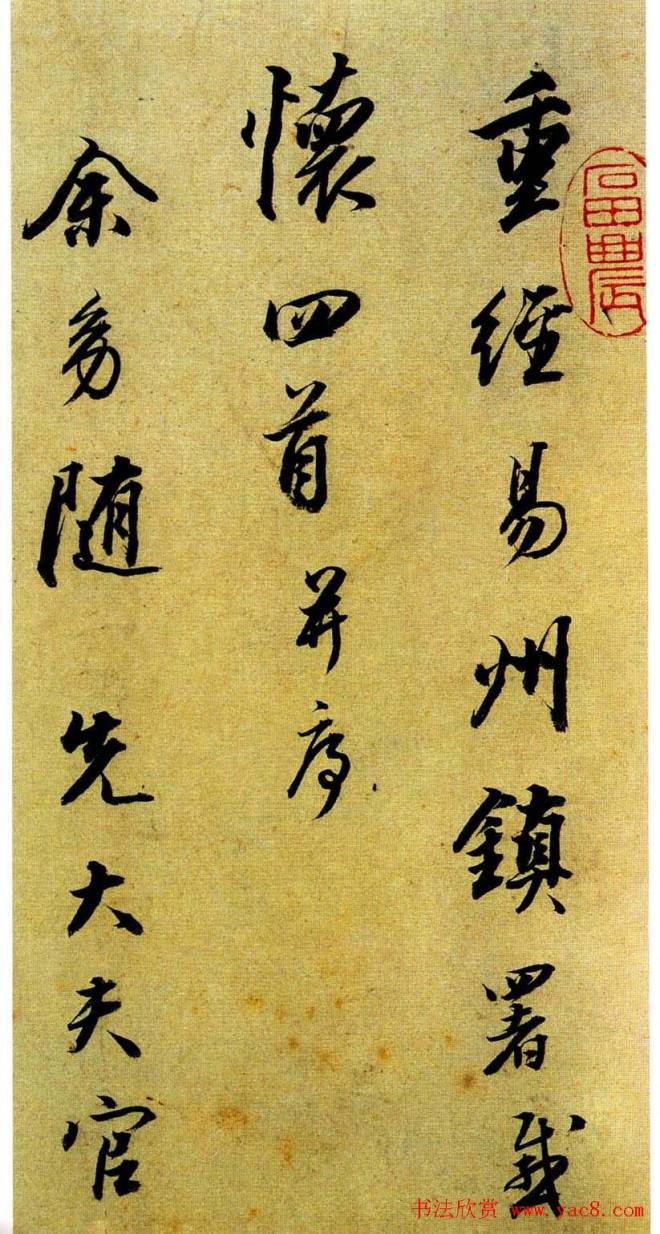 重經易州鎮署感
懷四首并序
余少隨先大夫官
書法欣赏 www.yac8.com